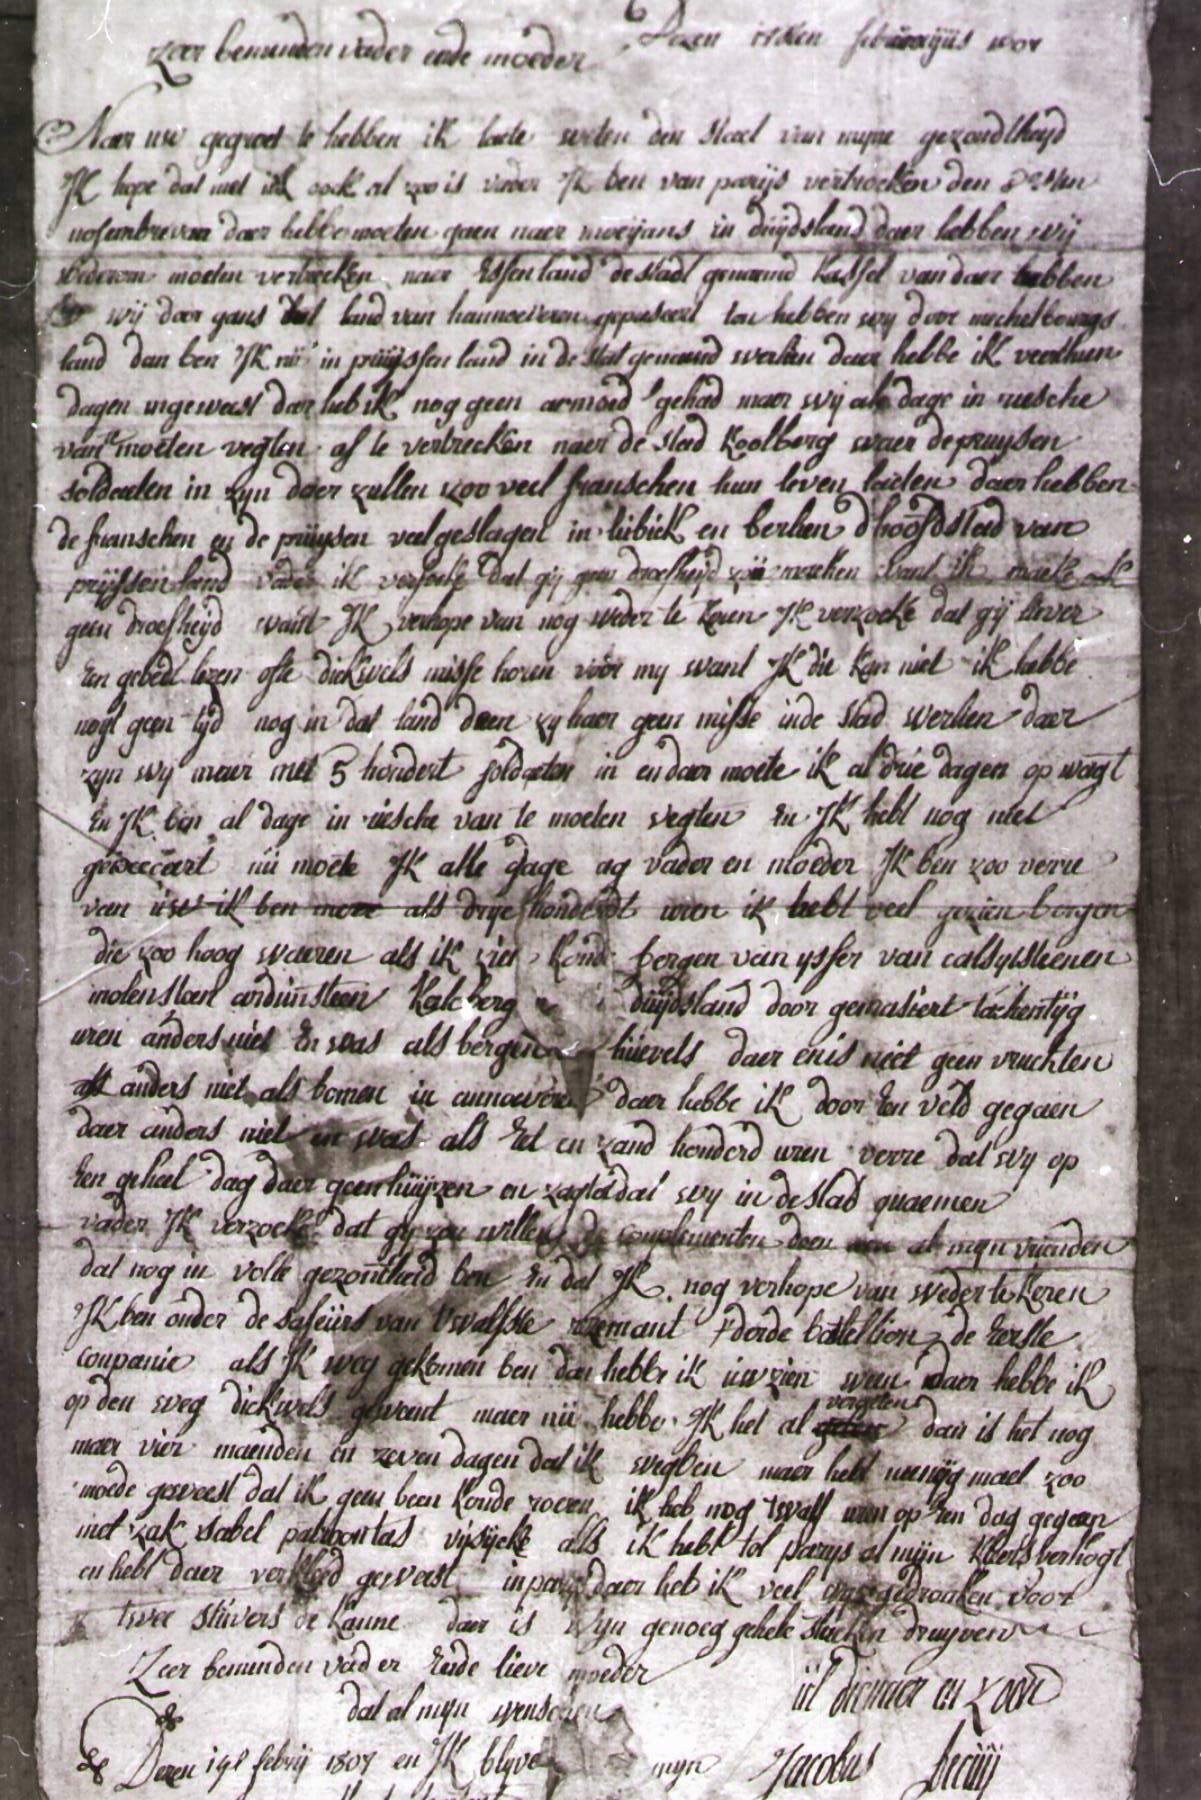 Dezen februarijus
zeer beminden vader ende moeder
Naer uw gegroet te hebben ik laete weten den staet van myne gezondtheyd
Ik hope dat met ook al zoo is vader Ik ben van parys vertrocken den
nofembre van daer hebbe moeten gaen naer in duijdsland daer hebben wij
wederom moeten vertrecken naer Essenland de stadt genaemd kassel van daer hebben
wij door gans het land van hannoeveren gepaseert ten hebben wij door mechelbourgs
land dan ben Ik nu in pruijssen land in de stat genaemd daer hebbe ik
dagen ingeweest daer heb ik nog geen armoed gehad maer wij al dage in riesche
van moeten vegten af te vertrecken naer de stad koolberg waer de pruysen
soldaeten in zyn daer zullen zoo veel franschen hun leven laeten daer hebben
de franschen en de pruijsen veel geslagen in lubick en berlien d'hoofdstad van
prijssen land vader ik versoeke dat gij geen droefheijd maecken want ik maeke
geen droefheijd want Ik verhope van nog weder te keren Ik verzoeke dat gij liever
Een gebedt lezen ofte dickwels misse horen voor my want Ik die kan niet ik hebbe
noyt geen tijd nog in dat land doen zy haer geen misse in de stad daer
zyn wy maer met 5 hondert soldaeten in en daer moete ik al drie dagen op wagt
En Ik ben al dage in riesche van te moeten vegten En Ik hebt nog niet
nu moete Ik alle dage ag vader en moeder Ik ben zoo verre
van uw ik ben meer als drije honderdt uren ik hebt veel gezien bergen
die zoo hoog waeren als ik zien konde bergen van ysser van calsydsteenen
molensteen arduinsteen kalcberg duijdsland door gemasiert tachentijg
uren anders niet En was als bergen hievels daer en is niet geen vruchten
als anders niet als bomen in annoevere daer hebbe ik door Een veld gegaen
daer anders niet en was als Het en zand honderd uren verre dat wy op
Een geheel dag daer geen huijzen en zagt dat wy in de stad quaemen
vader Ik verzoeke dat gy zou willen de complementen doen aen al myn vrienden
dat nog in volle gezontheid ben En dat Ik nog verhope van weder te keren
Ik ben onder de safeurs van twalfste rezemant derde battellion de Eerste
conpanie als Ik weg gekomen ben dan hebbe ik uw zien ween daer hebbe ik
op den weg dickwels geweent maer nu hebbe Ik het al vergeten dan is het nog
maer vier maenden en zeven dagen dat ik weg ben maer hebt menijg mael zoo
moede geweest dat ik geen been konde roeren ik heb nog twalf uren op Een dag gegaen
met zak sabel patroontas als ik hebt tot parys al mijn kleers verkogt
en hebt daer verkleed geweest in parys daer heb ik veel gedronken voor
twee stuivers de kanne daer is Wijn genoeg gehele stucken druyven
Zeer beminden vader Ende lieve moeder
dat al myn wenschen
Dezen 14 febrij 1807 en Ik blyve myn
ul dienaer en zoon
Jacobus